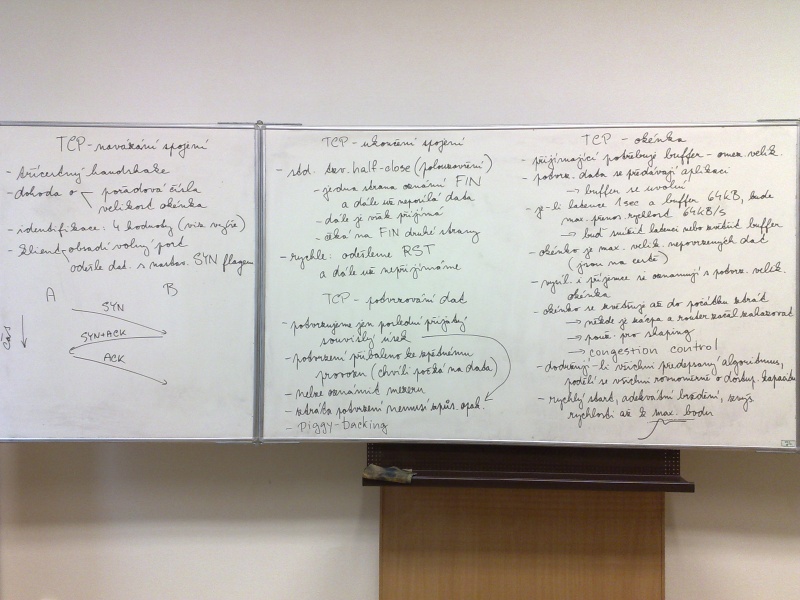 TCP - navázání spojení
- třícestný handshake
- dohoda o pořadová čísla
velikost okénka
- identifikace: 4 hodnoty (viz. výše)
- klient obsadí volný port
odešle dat. s nastav. SYN flagem
A B
čas
SYN
SYN+ACK
ACK
TCP - ukončení spojení
- std. tzv. half-close (polouzavření)
- jedna strana oznámí FIN
a dále už neposílá data
- dále je však přijímá
- čeká na FIN druhé strany
- rychle: odešleme RST
a dále už nepřijímáme
TCP - potvrzování dat
- potvrzujeme jen poslední přijatý
souvislý úsek
- potvrzení přibaleno ke zpětnému
provozu (chvíli počká na data)
- nelze oznámit mezeru
- ztráta potvrzení nemusí způs. opak.
- piggy-backing
TCP - okénka
- přijímající potřebuje buffer - omez. velik.
- potvrz. data se předávají aplikaci
→ buffer se uvolní
- je-li latence 1sec a buffer 64kB, bude
max. přenos. rychlost 64kB/s
→ buď snížit latenci nebo zvětšit buffer
- okénko je max. velik. nepotvrzených dat
(jsou na cestě)
- vysíl. i příjemce se oznamují s potvrz. velik.
okénka
- okénko se zvětšuje až do počátku ztrát
→ někde je zácpa a router začal zahazovat
→ použ. pro shaping
→ congestion control
- dodržují-li všichni předepsaný algoritmus,
podělí se všichni rovnoměrně o dostup. kapacitu
- rychlý start, adekvátní brždění, zvyš.
rychlosti až k max. bodu